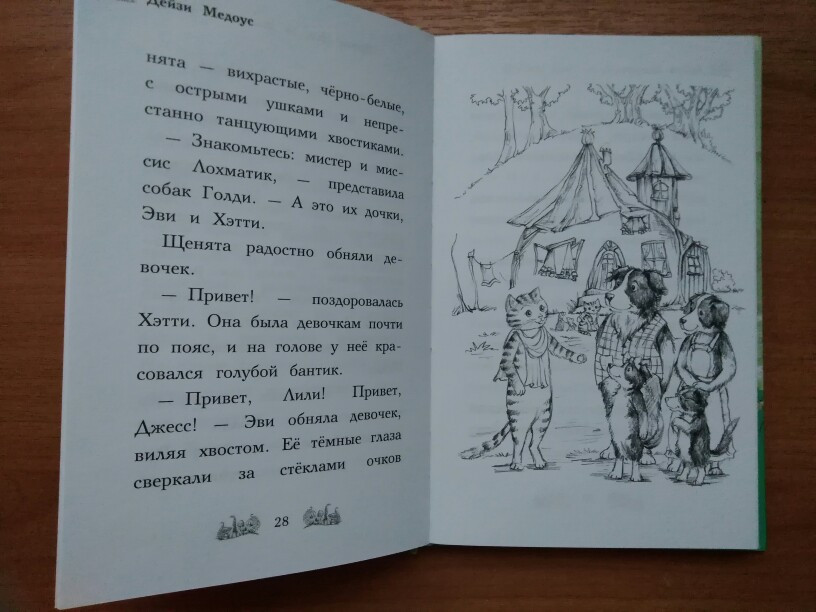 Дейзи Медоус
нята — вихрастые, чёрно-белые,
с острыми ушками и непре-
станно танцующими хвостиками.
— Знакомьтесь: мистер и мис-
сис Лохматик, — представила
собак Голди. — А это их дочки,
Эви и Хэтти.
Щенята радостно обняли де-
вочек.
— Привет! — поздоровалась
Хэтти. Она была девочкам почти
по пояс, и на голове у неё кра-
совался голубой бантик.
— Привет, Лили! Привет,
Джесс! — Эви обняла девочек,
виляя хвостом. Её тёмные глаза
сверкали за стёклами очков
28